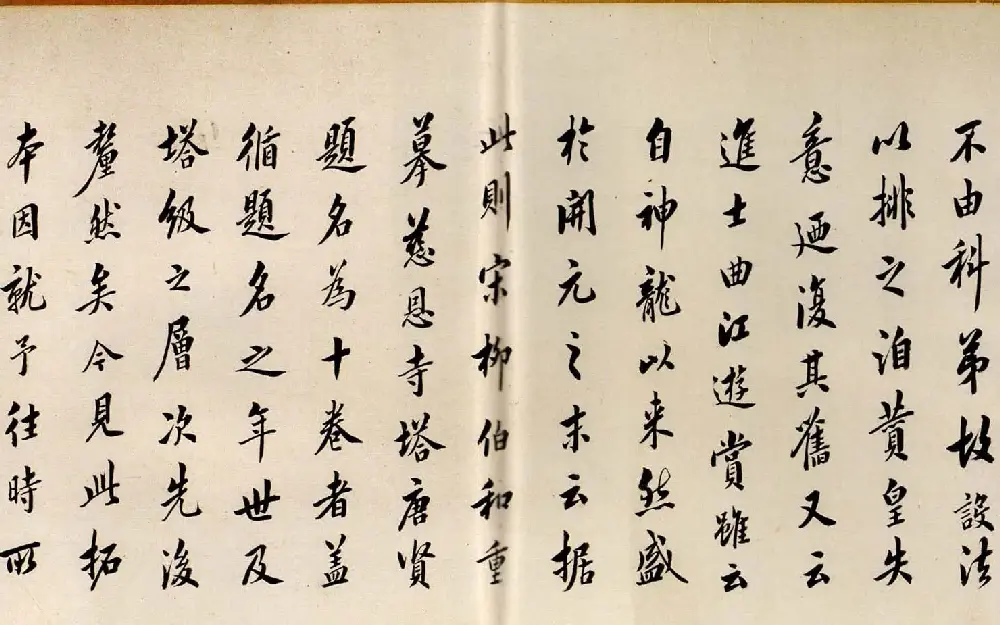 不由科第故設法
以排之洎賛皇失
意廼復其舊又云
進士曲江遊賞雖云
自神龍以来然盛
於開元之末云据
此則宋柳伯和重
摹慈恩寺塔唐賢
題名為十卷者盖
循題名之年世及
塔級之層次先後
釐然矣今見此拓
本因就予往時所